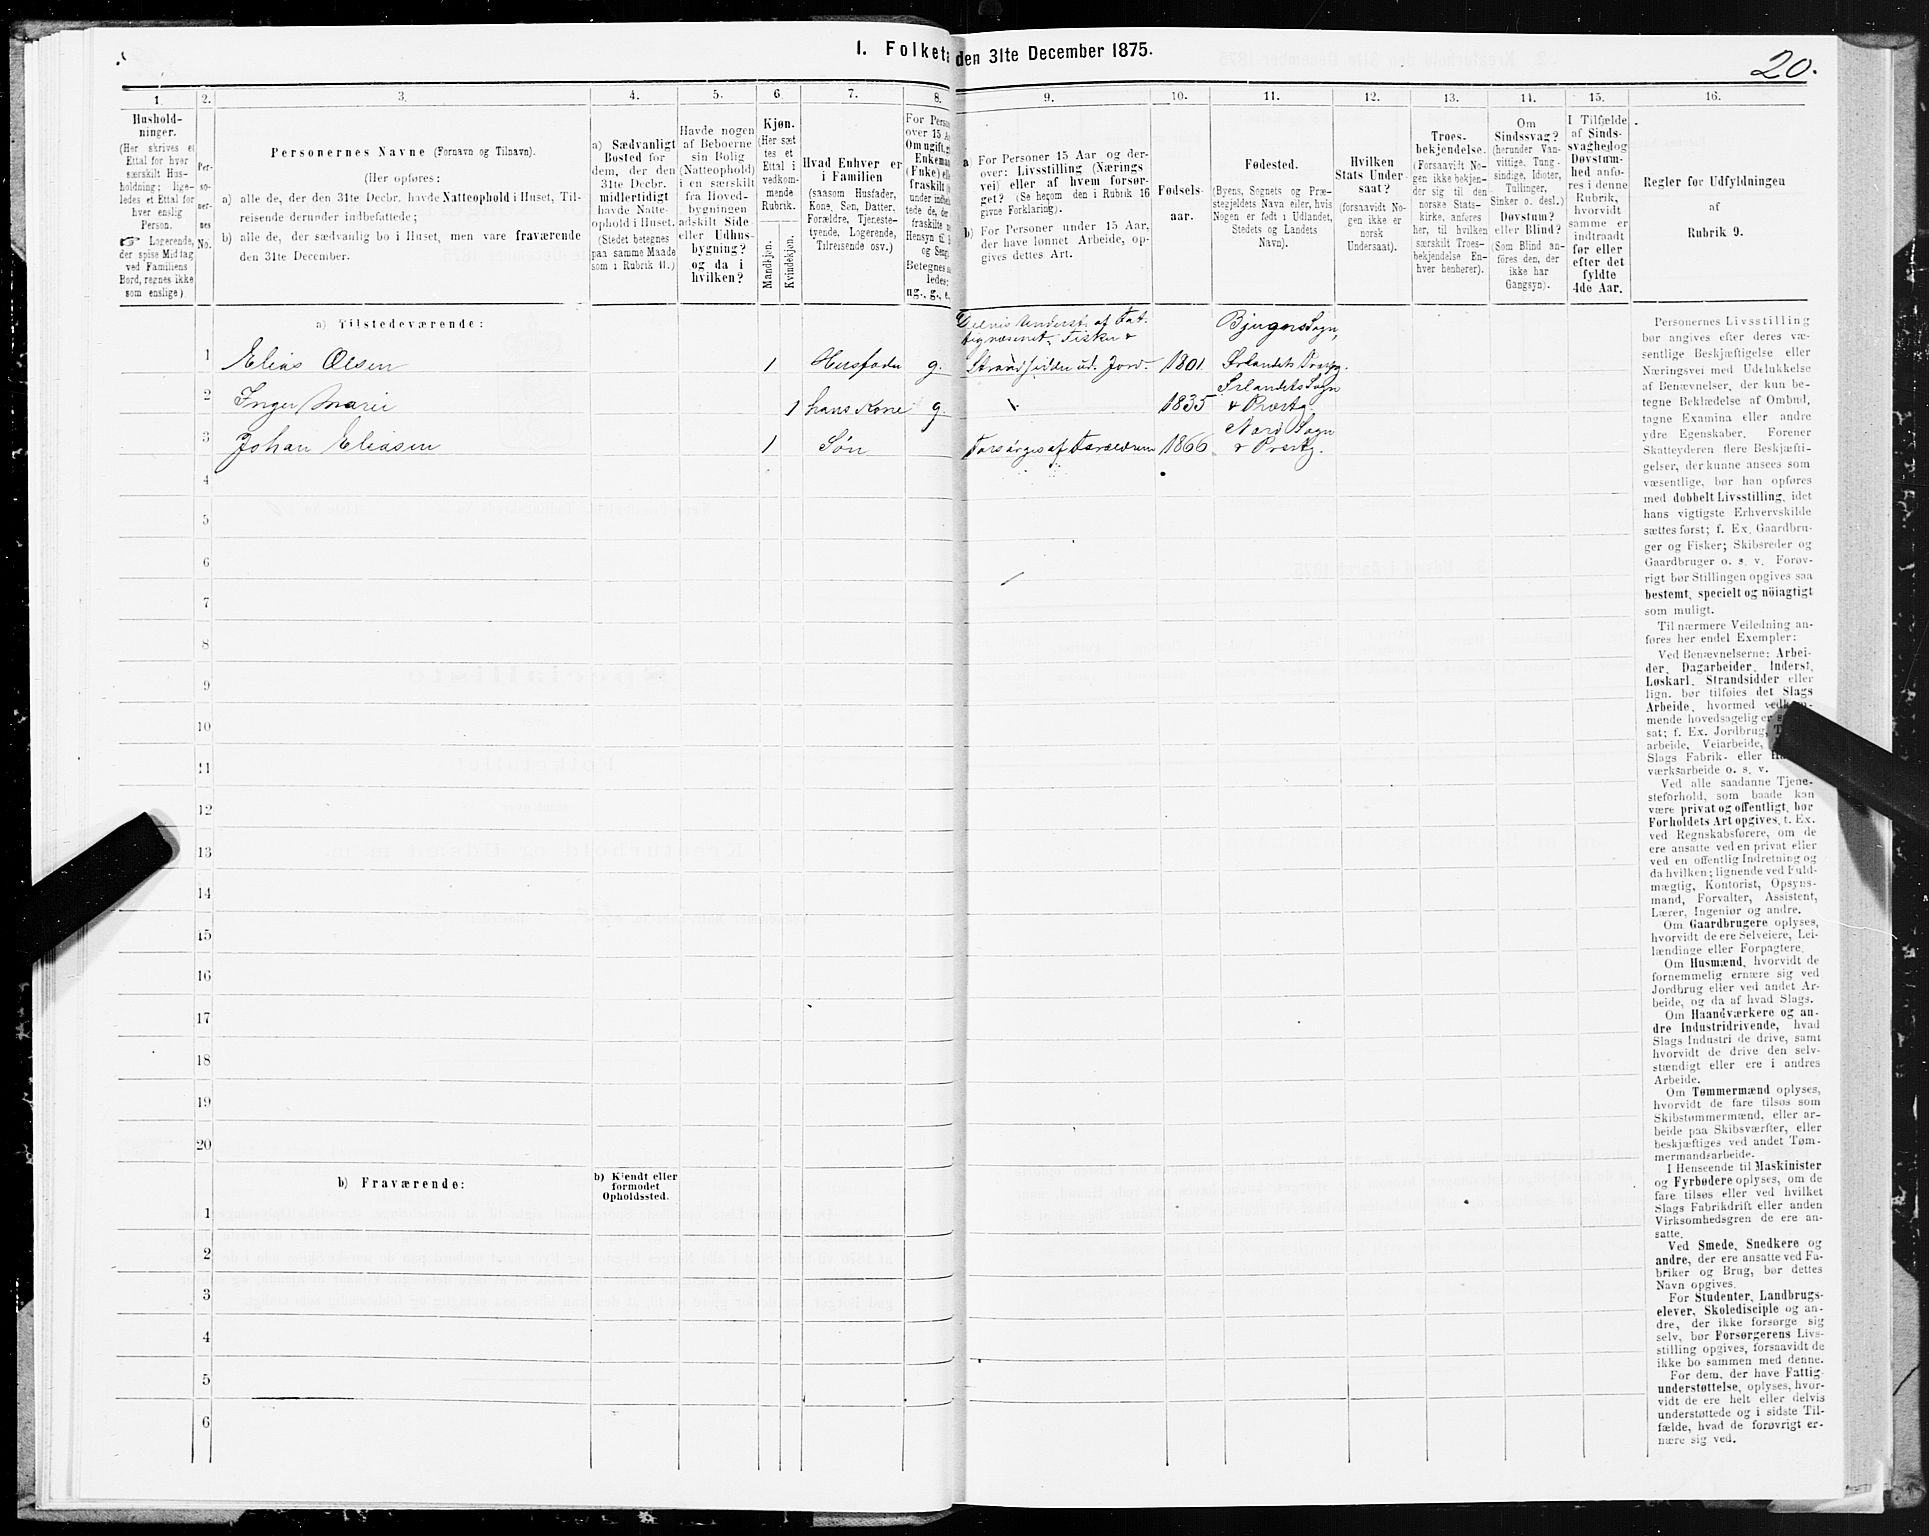 1. Folket
den 31te December 1875.
20.
1.
2.
3.
4.
5.
6.
7.
8.
9.
10.
11.
12.
13.
14.
15.
16.
Hushold-
ninger.
(Her skrives et
Ettal for hver
særskilt Hus-
holdning; lige-
ledes et Ettal for
hver enslig
Person.
☞ Logerende,
der spise Middag
ved Familiens
Bord, regnes ikke
som enslige)
Per-
so-
ner-
nes
No.
Personernes Navne (Fornavn og Tilnavn).
(Her opføres:
a) alle de, der den 31te Decbr. havde Natteophold i Huset, Til-
reisende derunder indbefattede;
b) alle de, der sædvanlig bo i Huset, men vare fraværende
den 31te December.
a) Sædvanligt
Bosted for
dem, der den
31te Decbr.
midlertidigt
havde Natte-
ophold i Huset.
(Stedet betegnes
paa samme Maade
som i Rubrik 11.)
Havde nogen
af Beboerne
sin Bolig
(Natteophold)
i en særskilt
fra Hoved-
bygningen
adskilt Side-
eller Udhus-
bygning?
og da i
hvilken?
Kjøn.
(Her sæt-
tes et
Ettal i
vedkom-
mende
Rubrik.
Mandkjøn.
Kvindekjøn.
Hvad Enhver er
i Familien
(saasom Husfader,
Kone, Søn, Datter,
Forældre, Tjeneste-
tyende, Logerende,
Tilreisende osv.)
For Person
over 15 A
Om ugift, g
Enkeman
(Enke) el
fraskilt (h
under indbe
tede de, de
fraskilte m
Hensyn til
og Seng
Betegnes s
ledes:
ug., g., e.
a) For Personer 15 Aar og der-
over: Livsstilling (Nærings
vei) eller af hvem forsør-
get? (Se herom den i Rubrik 16
givne Forklaring).
b) For Personer under 15 Aar,
der have lønnet Arbeide, op-
gives dettes Art.
Fødsels-
aar.
Fødested.
(Byens, Sognets og Præ-
stegjeldets Navn eller, hvis
Nogen er født i Udlandet,
Stedets og Landets
Navn).
Hvilken
Stats Under-
saat?
(forsaavidt No-
gen ikke er
norsk
Undersaat).
Troes-
bekjendelse.
(Forsaavidt No-
gen ikke bekjen-
der sig til den
norske Stats-
kirke, anføres
her, til hvilken
særskilt Troes-
bekjendelse En-
hver henhører).
Om
Sindssvag?
(herunder Van-
vittige, Tung-
sindige, Idioter,
Tullinger,
Sinker o. desl.)
Døvstum?
eller Blind?
(Som Blind an-
føres den, der
ikke har
Gangsyn).
I Tilfælde
af Sinds-
svaghed og
Døvstum-
hed anfø-
res i denne
Rubrik,
hvorvidt
samme er
indtraadt
før eller
efter det
fyldte
4de Aar.
Regler for Udfyldningen
af
Rubrik 9.
a) Tilstedeværende:
Delvis Underst. af Fat-
tigvæsenet, Fisker &
Bjugns Sogn,
1 Elias Olsen 1 Husfader g. Strandsidder ud. Jord. 1801 Ørlandets Præstg.
Ørlandets Sogn
2 Inger Marie 1 hans Kone g. 1835 & Præstg.
Sogn
3 Johan Eliasen 1 Søn Forsørges af Forældrene 1866 & Præstg.
4
5
6
7
8
9
10
11
12
13
14
15
16
17
18
19
20
b) Fraværende:
b) Kjendt eller
formodet
Opholdssted.
1
2
3
4
5
6
Personernes Livsstilling
bør angives efter deres væ-
sentlige Beskjæftigelse eller
Næringsvei med Udelukkelse
af Benævnelser, der kun be-
tegne Beklædelse af Ombud,
tagne Examina eller andre
ydre Egenskaber. Forener
Skatteyderen flere Beskjæfti-
gelser, der kunne ansees som
væsentlige, bør han opføres
med dobbelt Livsstilling, idet
hans vigtigste Erhvervskilde
sættes først; f. Ex. Gaardbru-
ger og Fisker; Skibsreder og
Gaardbruger o. s. v. Forøv-
rigt bør Stillingen opgives saa
bestemt, specielt og nöiagtigt
som muligt.
Til nærmere Veiledning an-
føres her endel Exempler:
Ved Benævnelserne: Arbei-
der, Dagarbeider, Inderst,
Løskarl, Strandsidder eller
lign. bør tilføies det Slags
Arbeide, hvormed vedkom-
mende hovedsagelig er
sat; f. Ex. Jordbrug,
arbeide, Veiarbeide,
Slags Fabrik- eller
værksarbeide o. s. v.
Ved alle saadanne Tjene-
steforhold, som baade kan
være privat og offentligt, bør
Forholdets Art opgives, f. Ex.
ved Regnskabsførere, om de
ere ansatte ved en privat eller
ved en offentlig Indretning og
da hvilken; lignende ved Fuld-
mægtig, Kontorist, Opsyns-
mand, Forvalter, Assistent,
Lærer, Ingeniør og andre.
Om Gaardbrugere oplyses,
hvorvidt de ere Selveiere, Lei-
lændinge eller Forpagtere.
Om Husmænd, hvorvidt de
fornemmelig ernære sig ved
Jordbrug eller ved andet Ar-
beide, og da af hvad Slags.
Om Haandværkere og an-
dre Industridrivende, hvad
Slags Industri de drive, samt
hvorvidt de drive den selv-
stændigt eller ere i andres
Arbeide.
Om Tømmermænd oplyses,
hvorvidt de fare tilsøs som
Skibstømmermænd, eller ar-
beide paa Skibsværfter, eller
beskjæftiges ved andet Tøm-
mermandsarbeide.
I Henseende til Maskinister
og Fyrbødere oplyses, om de
fare tilsøs eller ved hvilket
Slags Fabrikdrift eller anden
Virksomhedsgren de ere an-
satte.
Ved Smede, Snedkere og
andre, der ere ansatte ved Fa-
briker og Brug, bør dettes
Navn opgives.
For Studenter, Landbrugs-
elever, Skoledisciple og an-
dre, der ikke forsørge sig
selv, bør Forsørgerens Livs-
stilling opgives, forsaavidt de
ikke bo sammen med denne.
For dem, der have Fattig-
understøttelse, oplyses, hvor-
vidt de ere helt eller delvis
understøttede og i sidste Til-
fælde, hvad de forøvrigt er-
nære sig ved.